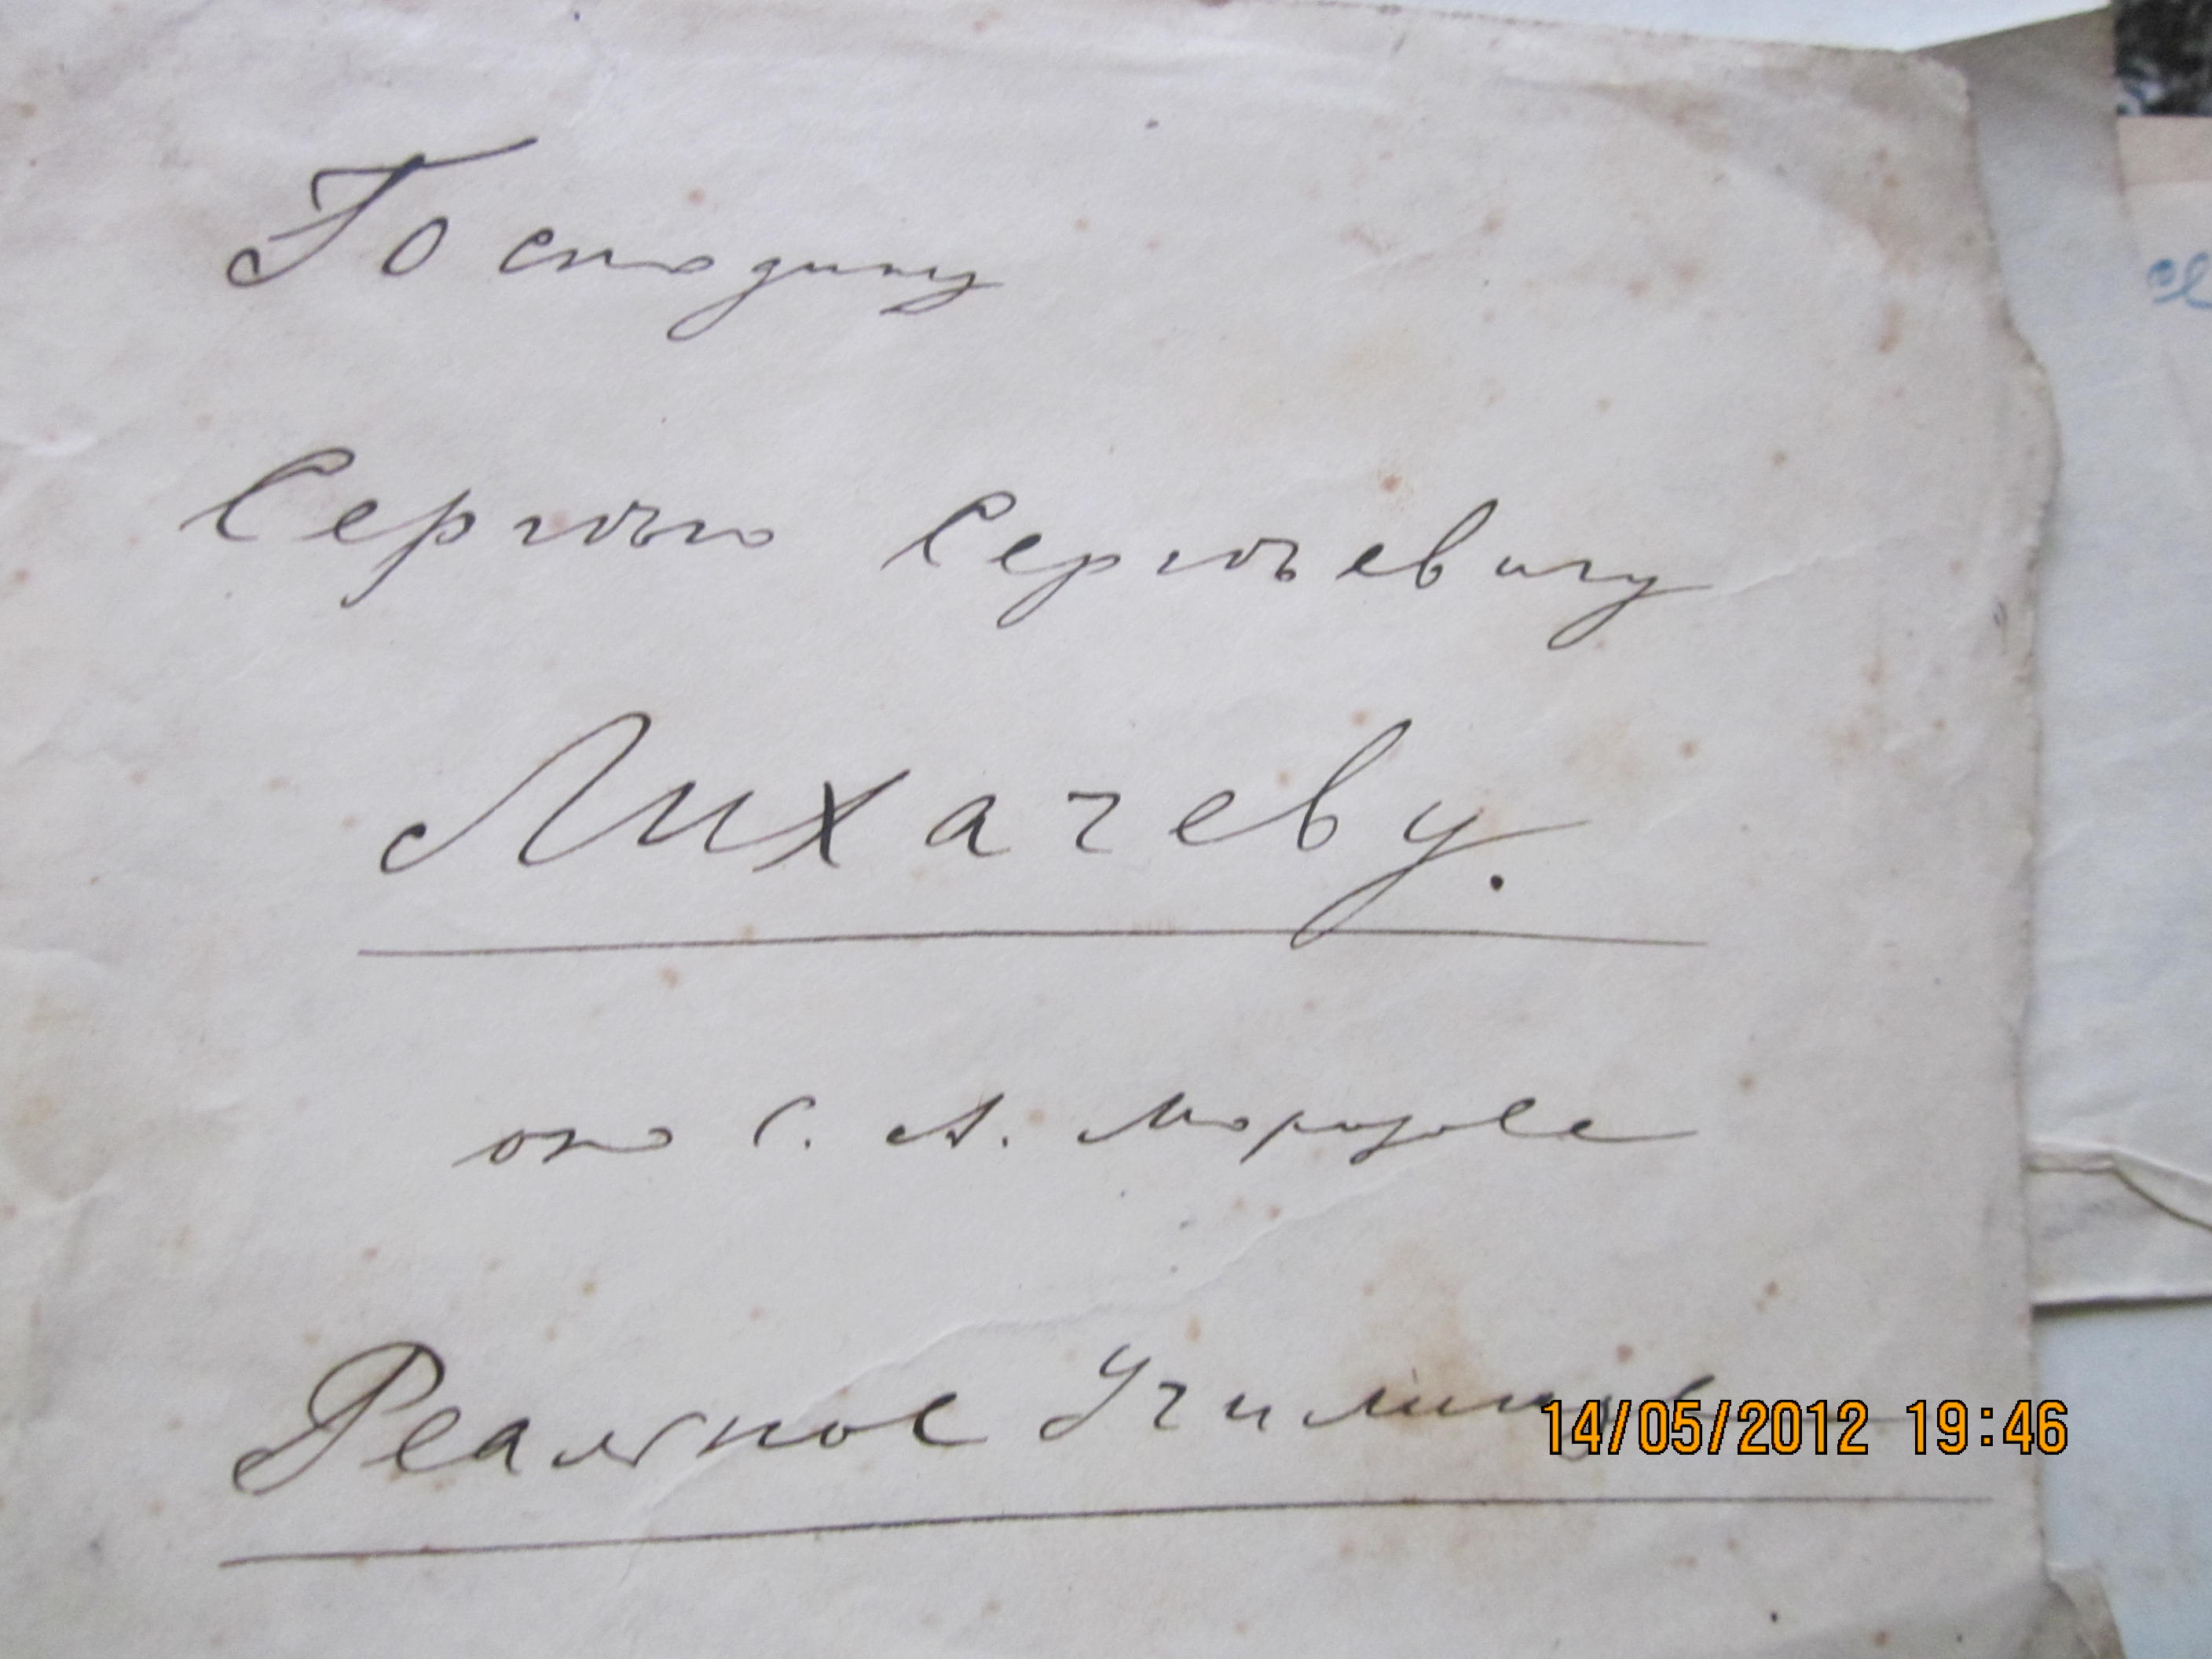 Господину
Сергѣю Сергѣевичу
Лихачеву.
отъ С. А. Морозова
Реальное Училище
14/05/2012 19:46